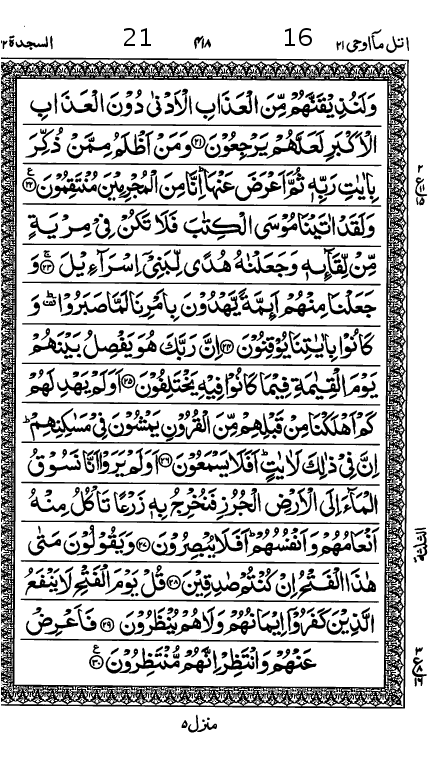 اتل مآاوحی ۲۱ 16 ۴۱۸ 21 السجدة ۳۲
وَلَنُذِيْقَنَّهُمْ مِّنَ الْعَذَابِ الْاَدْنٰى دُوْنَ الْعَذَابِ
الْاَكْبَرِ لَعَلَّهُمْ يَرْجِعُوْنَ ﴿۲۱﴾ وَمَنْ اَظْلَمُ مِمَّنْ ذُكِّرَ
بِاٰيٰتِ رَبِّهٖ ثُمَّ اَعْرَضَ عَنْهَا ؕ اِنَّا مِنَ الْمُجْرِمِيْنَ مُنْتَقِمُوْنَ ﴿۲۲﴾ ع
وَلَقَدْ اٰتَيْنَا مُوْسَى الْكِتٰبَ فَلَا تَكُنْ فِيْ مِرْيَةٍ
مِّنْ لِّقَآئِهٖ وَجَعَلْنٰهُ هُدًى لِّبَنِيْٓ اِسْرَآءِيْلَ ﴿۲۳﴾ ۚ وَ
جَعَلْنَا مِنْهُمْ اَئِمَّةً يَّهْدُوْنَ بِاَمْرِنَا لَمَّا صَبَرُوْا ؕ وَ
كَانُوْا بِاٰيٰتِنَا يُوْقِنُوْنَ ﴿۲۴﴾ اِنَّ رَبَّكَ هُوَ يَفْصِلُ بَيْنَهُمْ
يَوْمَ الْقِيٰمَةِ فِيْمَا كَانُوْا فِيْهِ يَخْتَلِفُوْنَ ﴿۲۵﴾ اَوَلَمْ يَهْدِ لَهُمْ
كَمْ اَهْلَكْنَا مِنْ قَبْلِهِمْ مِّنَ الْقُرُوْنِ يَمْشُوْنَ فِيْ مَسٰكِنِهِمْ ؕ
اِنَّ فِيْ ذٰلِكَ لَاٰيٰتٍ ؕ اَفَلَا يَسْمَعُوْنَ ﴿۲۶﴾ اَوَلَمْ يَرَوْا اَنَّا نَسُوْقُ
الْمَآءَ اِلَى الْاَرْضِ الْجُرُزِ فَنُخْرِجُ بِهٖ زَرْعًا تَاْكُلُ مِنْهُ
اَنْعَامُهُمْ وَاَنْفُسُهُمْ ؕ اَفَلَا يُبْصِرُوْنَ ﴿۲۷﴾ وَيَقُوْلُوْنَ مَتٰى
هٰذَا الْفَتْحُ اِنْ كُنْتُمْ صٰدِقِيْنَ ﴿۲۸﴾ قُلْ يَوْمَ الْفَتْحِ لَا يَنْفَعُ
الَّذِيْنَ كَفَرُوْٓا اِيْمَانُهُمْ وَلَا هُمْ يُنْظَرُوْنَ ﴿۲۹﴾ فَاَعْرِضْ
عَنْهُمْ وَانْتَظِرْ اِنَّهُمْ مُّنْتَظِرُوْنَ ﴿۳۰﴾ ع
الثلثة
منزل ۵